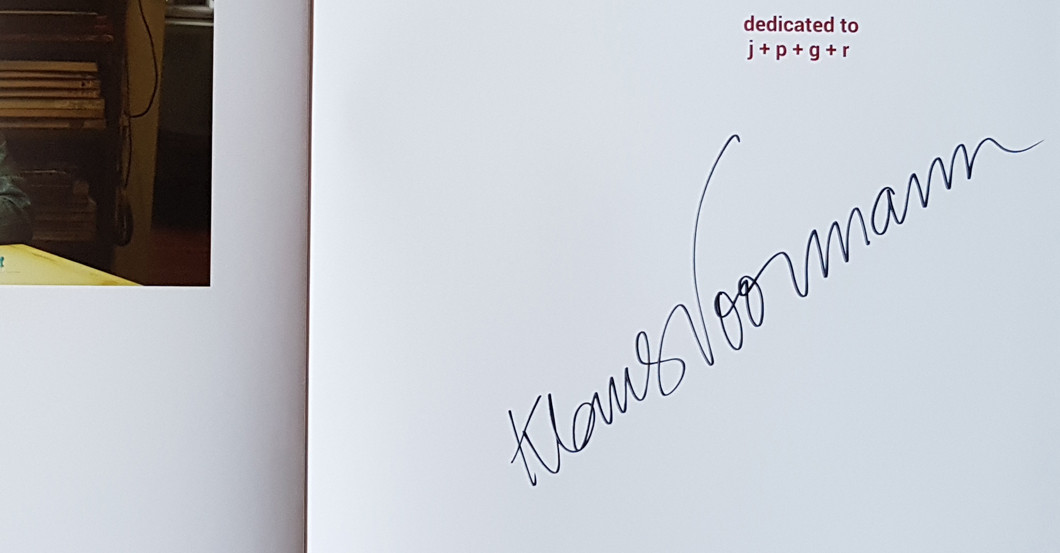 dedicated to
j + p + g + r
Klaus Voormann